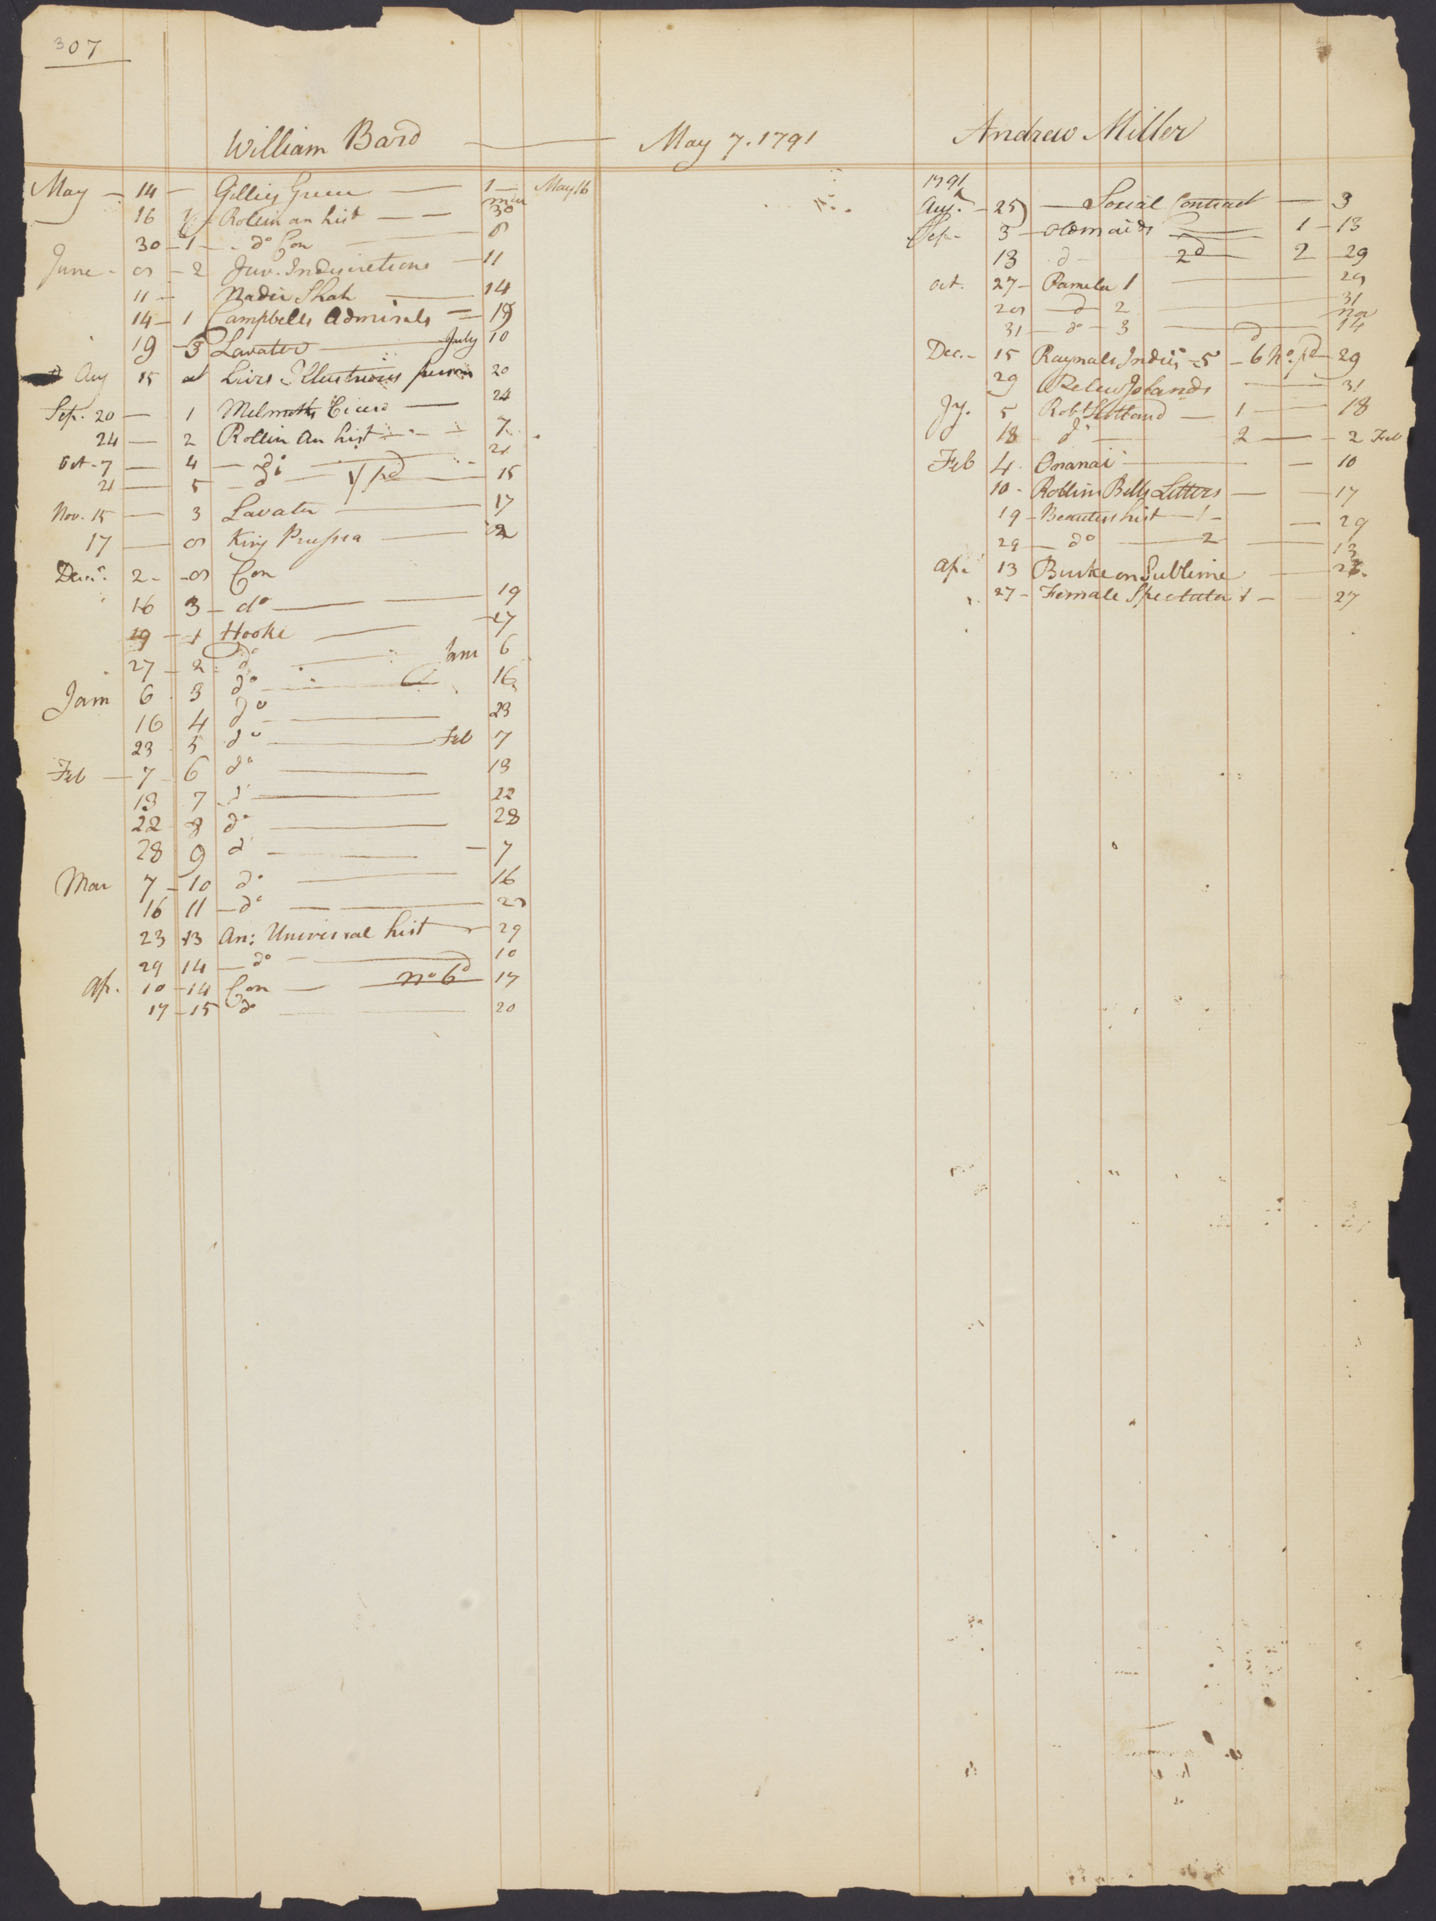 307
William Bard — May 7. 1791
May — 14 — Gillies Greece — 1 — May 16
16 Rollin an hist — — 30
30 — 1 — do Con — 8
June - 8 — 2 Juv. Indiscretions — 11
11 — Nadir Shah — 14
14 — 1 Campbells Admirals — 19
19 — 3 Lavater — July 10
Aug 15 Lives Illustrious persons 20
Sep. 20 — 1 Melmoths Cicero — 24
24 — 2 Rollin An hist — 7
Oct - 7 — 4 — do — 21
21 — 5 — do — 1/ pd — 15
Nov. 15 — 3 Lavater — 17
17 — 8 King Prussia — 2
Decr. 2 - - 8 Con
16 3 — do — 19
19 — 1 Hooke — 27
27 — 2 do — Jany 6
Jany 6 3 do — 16
16 4 do — 23
23 5 do — Feb 7
Feb — 7 — 6 do — 13
13 7 do — 22
22 8 do — 28
28 9 do — 7
Mar 7 — 10 do — 16
16 11 — do — 23
23 13 An: Universal hist — 29
29 14 — do — 10
Ap. 10 — 14 Con — no 6d 17
17 — 15 do — 20
Andrew Miller
1791
Aug. — 25 — Social Contract — 3
Sep. - 3 — Oldmaids — 1 — 13
13 do 2d 2 — 29
Oct. 27 — Pamela 1 — 29
29 — do — 2 — 31
31 — do — 3 — 14
Dec. — 15 Raynals Indies — 5 — 6 No. pd — 29
29 Pelew Islands — 31
Jy. 5 Robt Scotland — 1 — 18
18 — do — 2 — 2 Feb
Feb 4. Onanai — 10
10 - Rollins Bells Letters — 17
19 — Beauties hist — 1 — 29
29 — do — 2 — 13
Ap. 13 Burke on Sublime — 26
27 — Female Spectator 1 — 27